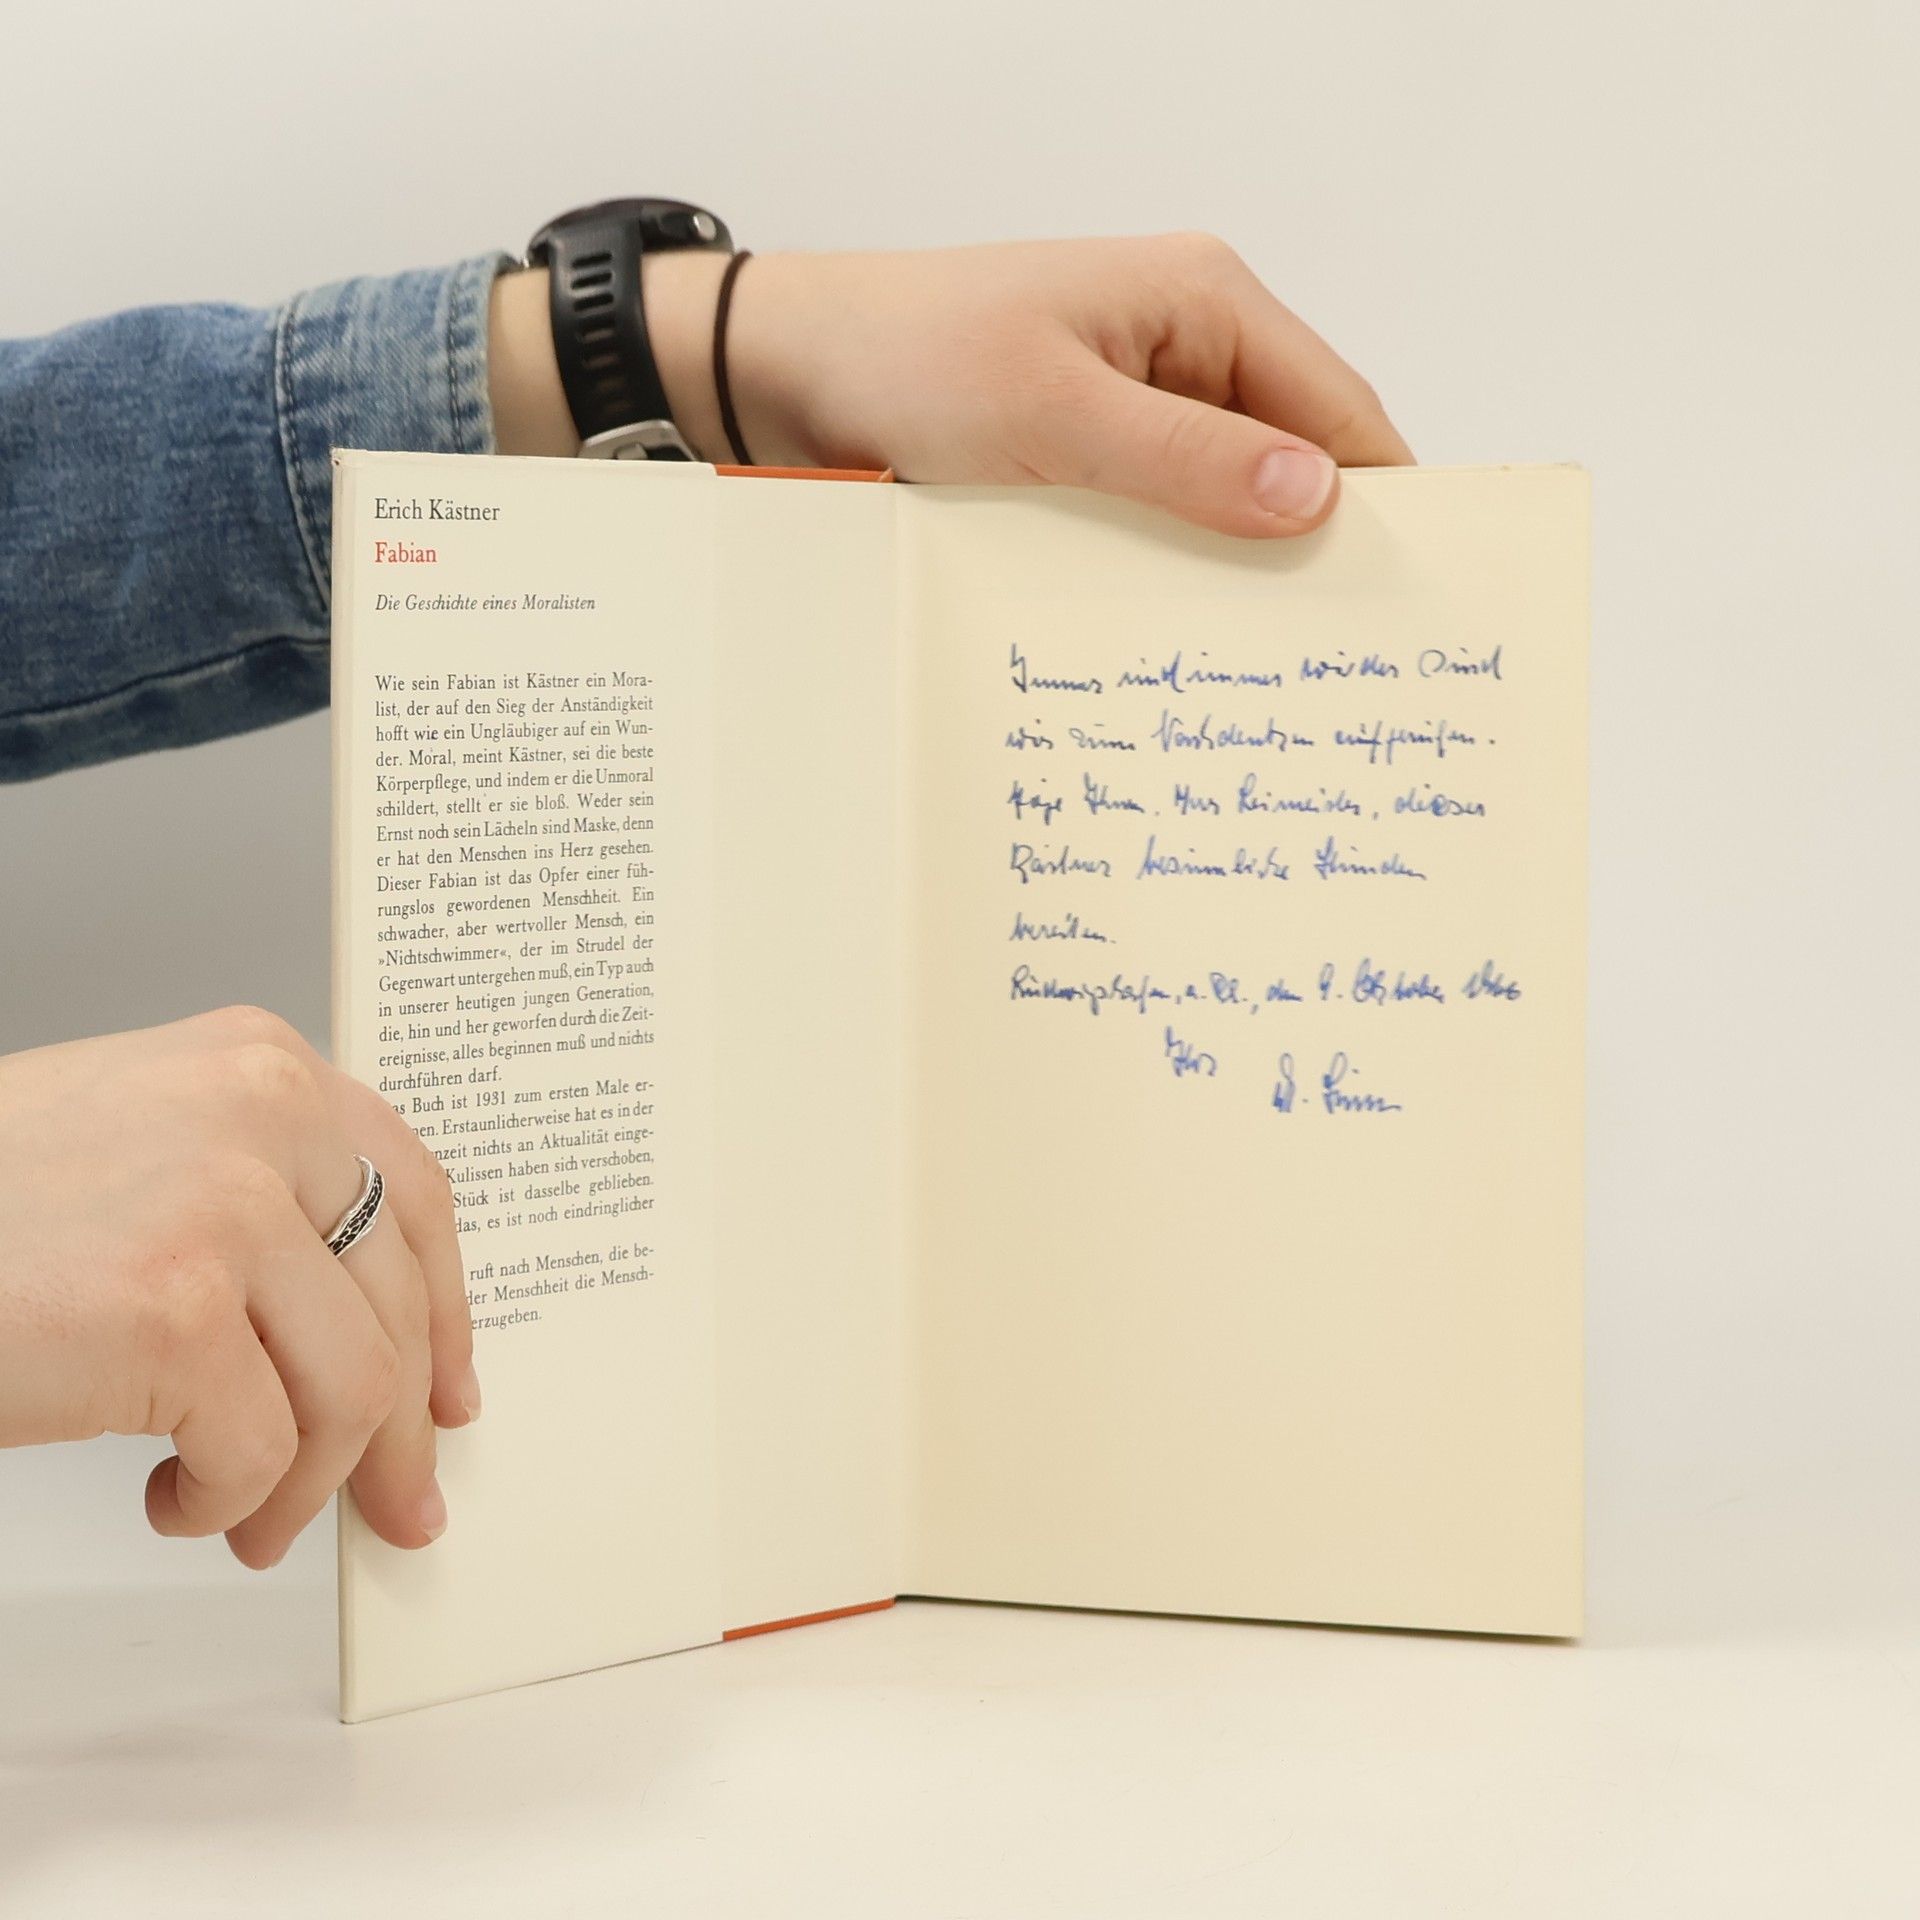 Erich Kästner
Fabian
Die Geschichte eines Moralisten
Wie sein Fabian ist Kästner ein Mora-
list, der auf den Sieg der Anständigkeit
hofft wie ein Ungläubiger auf ein Wun-
der. Moral, meint Kästner, sei die beste
Körperpflege, und indem er die Unmoral
schildert, stellt er sie bloß. Weder sein
Ernst noch sein Lächeln sind Maske, denn
er hat den Menschen ins Herz gesehen.
Dieser Fabian ist das Opfer einer füh-
rungslos gewordenen Menschheit. Ein
schwacher, aber wertvoller Mensch, ein
»Nichtschwimmer«, der im Strudel der
Gegenwart untergehen muß, ein Typ auch
in unserer heutigen jungen Generation,
die, hin und her geworfen durch die Zeit-
ereignisse, alles beginnen muß und nichts
durchführen darf.
as Buch ist 1931 zum ersten Male er-
nen. Erstaunlicherweise hat es in der
nzeit nichts an Aktualität einge-
Kulissen haben sich verschoben,
Stück ist dasselbe geblieben.
das, es ist noch eindringlicher
ruft nach Menschen, die be-
der Menschheit die Mensch-
erzugeben.
Immer und immer wieder sind
wir zum Nachdenken aufgerufen.
Möge Ihnen, dieser
Kästner besinnliche Stunden
bereiten.
Ludwigshafen, a. Rh., den 9. Oktober
Ihr